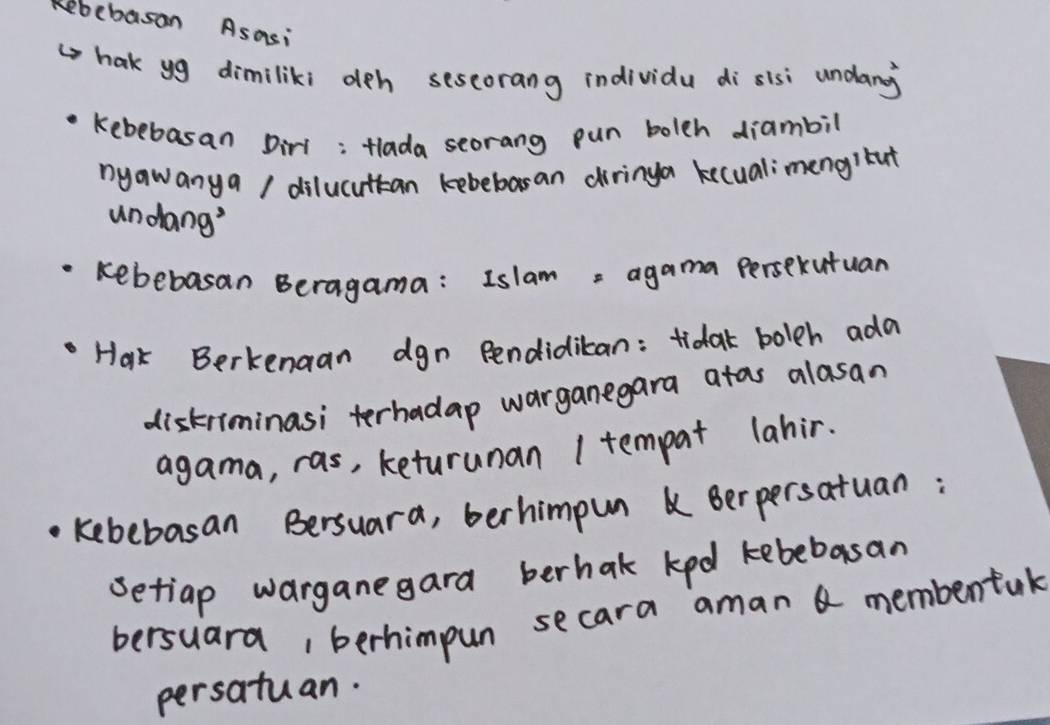 Kebebasan Asasi
↳ hak yg dimiliki oleh seseorang individu di sisi undang²
• Kebebasan Diri : tiada seorang pun boleh diambil
nyawanya / dilucutkan kebebasan dirinya kecuali mengikut
undang²
• Kebebasan Beragama : Islam = agama Persekutuan
• Hak Berkenaan dgn Pendidikan : tidak boleh ada
diskriminasi terhadap warganegara atas alasan
agama, ras, keturunan / tempat lahir.
• Kebebasan Bersuara, berhimpun & Berpersatuan :
setiap warganegara berhak kpd kebebasan
bersuara, berhimpun secara aman & membentuk
persatuan.